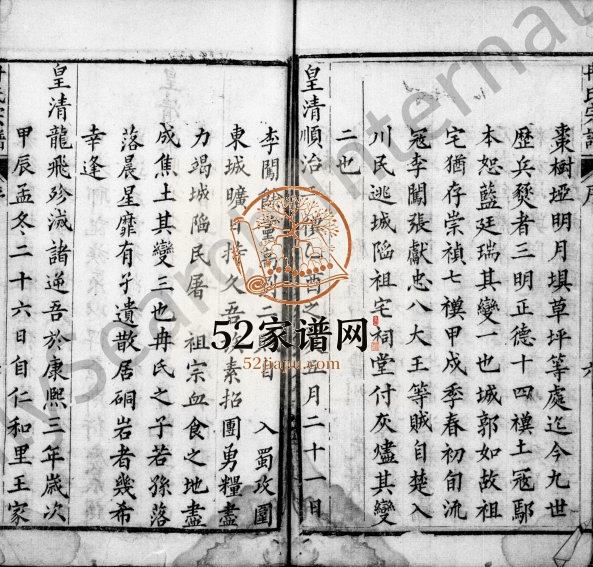 棗樹埡明月埧草坪等處迄今九世
歷兵燹者三明正德十四禩土冦鄢
本恕藍廷瑞其變一也城郭如故祖
宅猶存崇禎七禩甲戍季春初旬流
冦李闖張獻忠八大王等賊自楚入
川民逃城陷祖宅祠堂付灰燼其變
二也
皇清順治 禩 酉 五月二十一日
李闖 入蜀攻圍
東城曠日持久吾 素招團勇糧盡
力竭城陷民屠 祖宗血食之地盡
成焦土其變三也冉氏之子若孫落
落晨星靡有孑遺散居硐岩者幾希
幸逢
皇清龍飛殄滅諸逆吾於康熙三年嵗次
甲辰孟冬二十六日自仁和里王家
冉氏宗譜
序
52家谱网
52jiapu.com
lySearch International